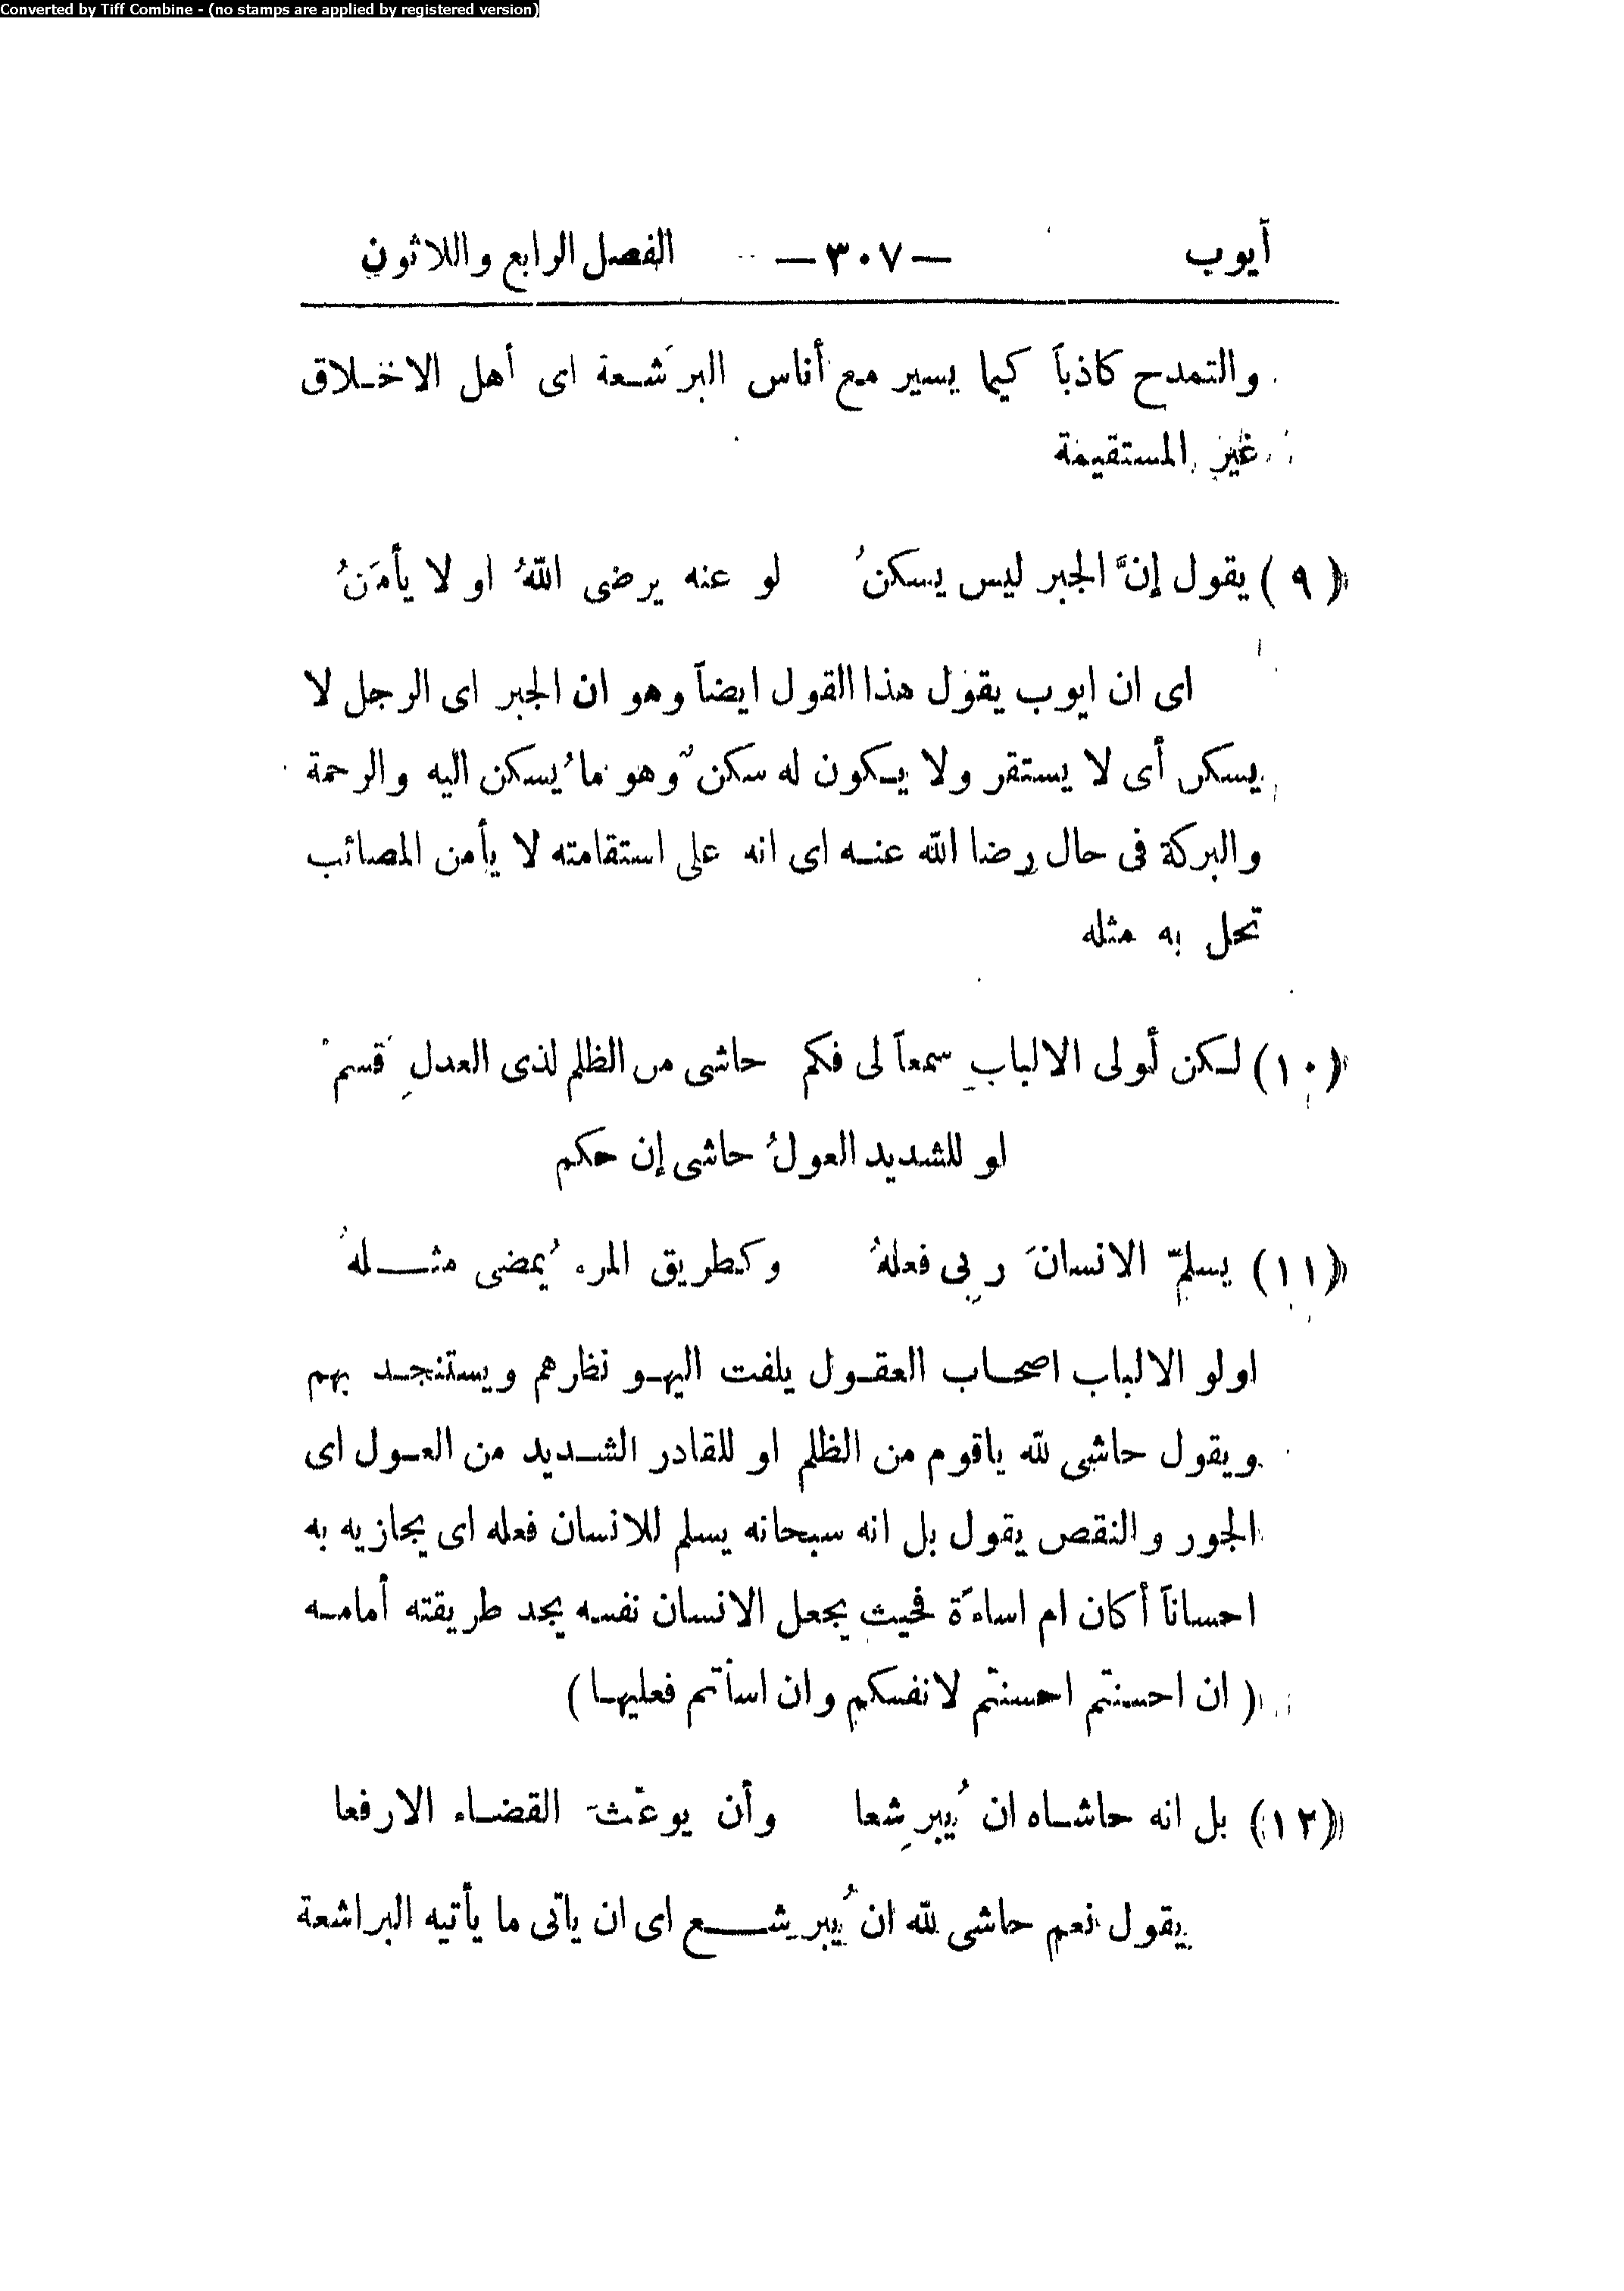 Converted by Tiff Combine - (no stamps are applied by registered version)
أيوب — ٣٠٧ — الفصل الرابع واللاثون
والتمدح كاذباً كيما يسير مع أناس البرَشعة اى أهل الاخلاق
غير المستقيمة
(٩) يقول إنَّ الجبر ليس يسكنُ لو عنه يرضى اللهُ او لا يأمَنُ
اى ان ايوب يقول هذا القول ايضاً وهو ان الجبر اى الرجل لا
يسكن أى لا يستقر ولا يكون له سكنٌ وهو ما يُسكن اليه والرحمة
والبركة فى حال رضا الله عنه اى انه على استقامته لا يأمن المصائب
تحل به مثله
(١٠) لكن أولى الالبابِ سمعاً لى فكم حاشى من الظلم لذى العدلِ قَسم
لو للشديد العولُ حاشى إن حكم
(١١) يسلمّ الانسانَ ربى فعلهُ وكطريق المرء يُمضى مثلهُ
اولو الالباب اصحاب العقول يلفت اليهو نظارهم ويستنجد بهم
ويقول حاشى لله ياقوم من الظلم او للقادر الشديد من العول اى
الجور والنقص يقول بل انه سبحانه يسلم للانسان فعله اى يجازيه به
احساناً أكان ام اساءَة فحيث يجعل الانسان نفسه يجد طريقته أمامه
( ان احسنتم احسنتم لانفسكم وان اسأتم فعليها )
(١٢) بل انه حاشاه ان يُبرِشعا وأن يوعّثَ القضاء الارفعا
يقول نعم حاشى لله ان يُبرِشع اى ان ياتى ما يأتيه البراشعة